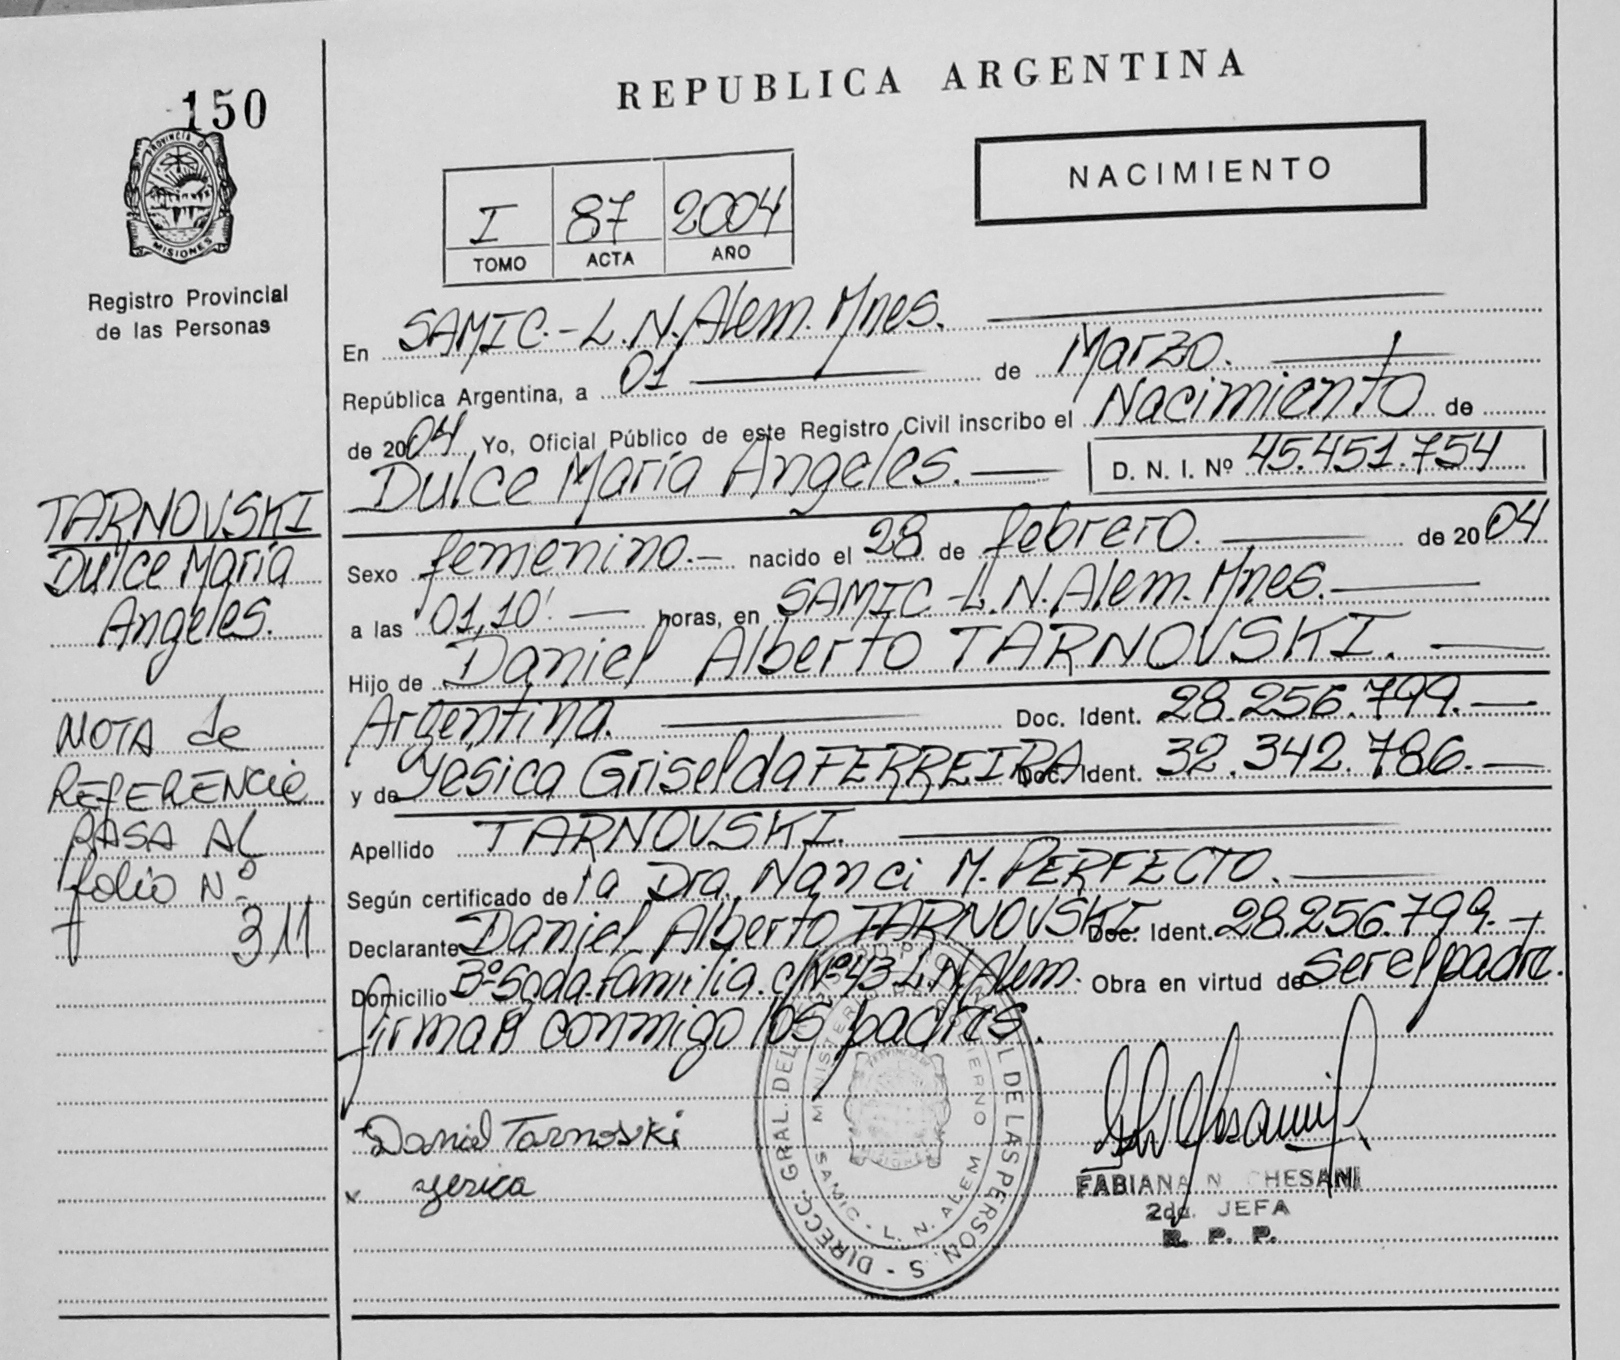 150
PROVINCIA DE
MISIONES
Registro Provincial
de las Personas
TARNOVSKI
Dulce María
Angeles.
NOTA de
REFERENCIA
PASA AL
folio Nº
311
REPUBLICA ARGENTINA
NACIMIENTO
I 87 2004
TOMO ACTA AÑO
En SAMIC.-L.N.Alem.Mnes.
República Argentina, a 01 de Marzo.
de 2004 Yo, Oficial Público de este Registro Civil inscribo el Nacimiento de
Dulce María Angeles. D. N. I. Nº 45.451.754
Sexo femenino.- nacido el 28 de febrero. de 2004
a las 01,10'. horas, en SAMIC-L.N.Alem.Mnes.
Hijo de Daniel Alberto TARNOVSKI.
Argentina. Doc. Ident. 28.256.799.-
y de Yesica Griselda FERREIRA Doc. Ident. 32.342.786.-
Apellido TARNOVSKI.
Según certificado de la Dra. Nanci M. PERFECTO.
Declarante Daniel Alberto TARNOVSKI Doc. Ident. 28.256.799.-
Domicilio Bº Sgda.familia.c/Nº43 L.N.Alem. Obra en virtud de ser el padre.
firman conmigo los padres.
Daniel Tarnovski
Yesica
DIRECC. GRAL. DEL DE LAS PERSON S
MINISTERIO GOBIERNO
SAMIC - L. N. ALEM
FABIANA N CHESANI
2da. JEFA
R. P. P.